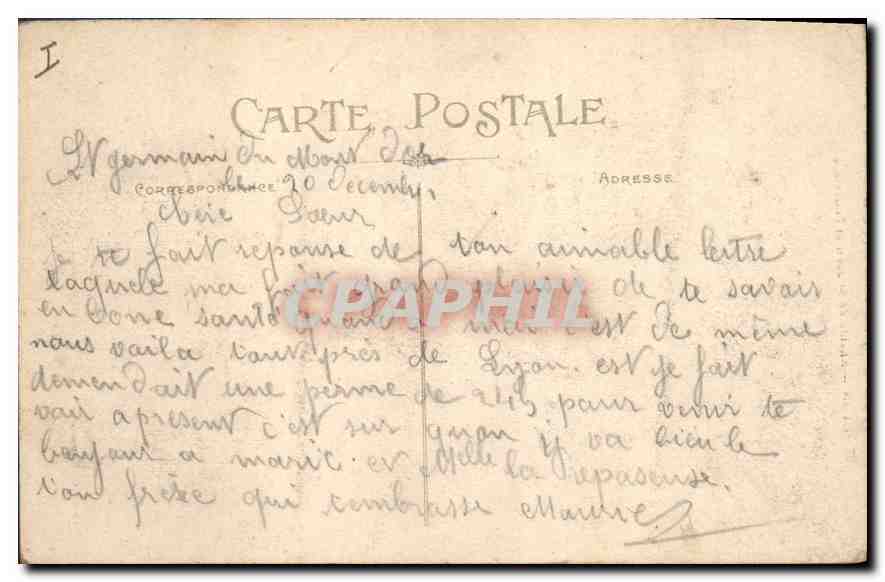 I
CARTE POSTALE
St germain du Mont Dor
CORRESPONDANCE
le 20 Decembr.
ADRESSE
chère Soeur
Je te fait reponse de ton aimable lettre
laquele ma fait grand plaisir de te savoir
en bone santé quand a moi c'est de même
nous voila tout près de Lyon. est je fait
demendait une perme de 24h pour venir te
voir apresent c'est sur quon y va bien le
bonjour a marie et Melle la repaseuse.
ton frère qui tembrasse Maurice
CPAPHIL